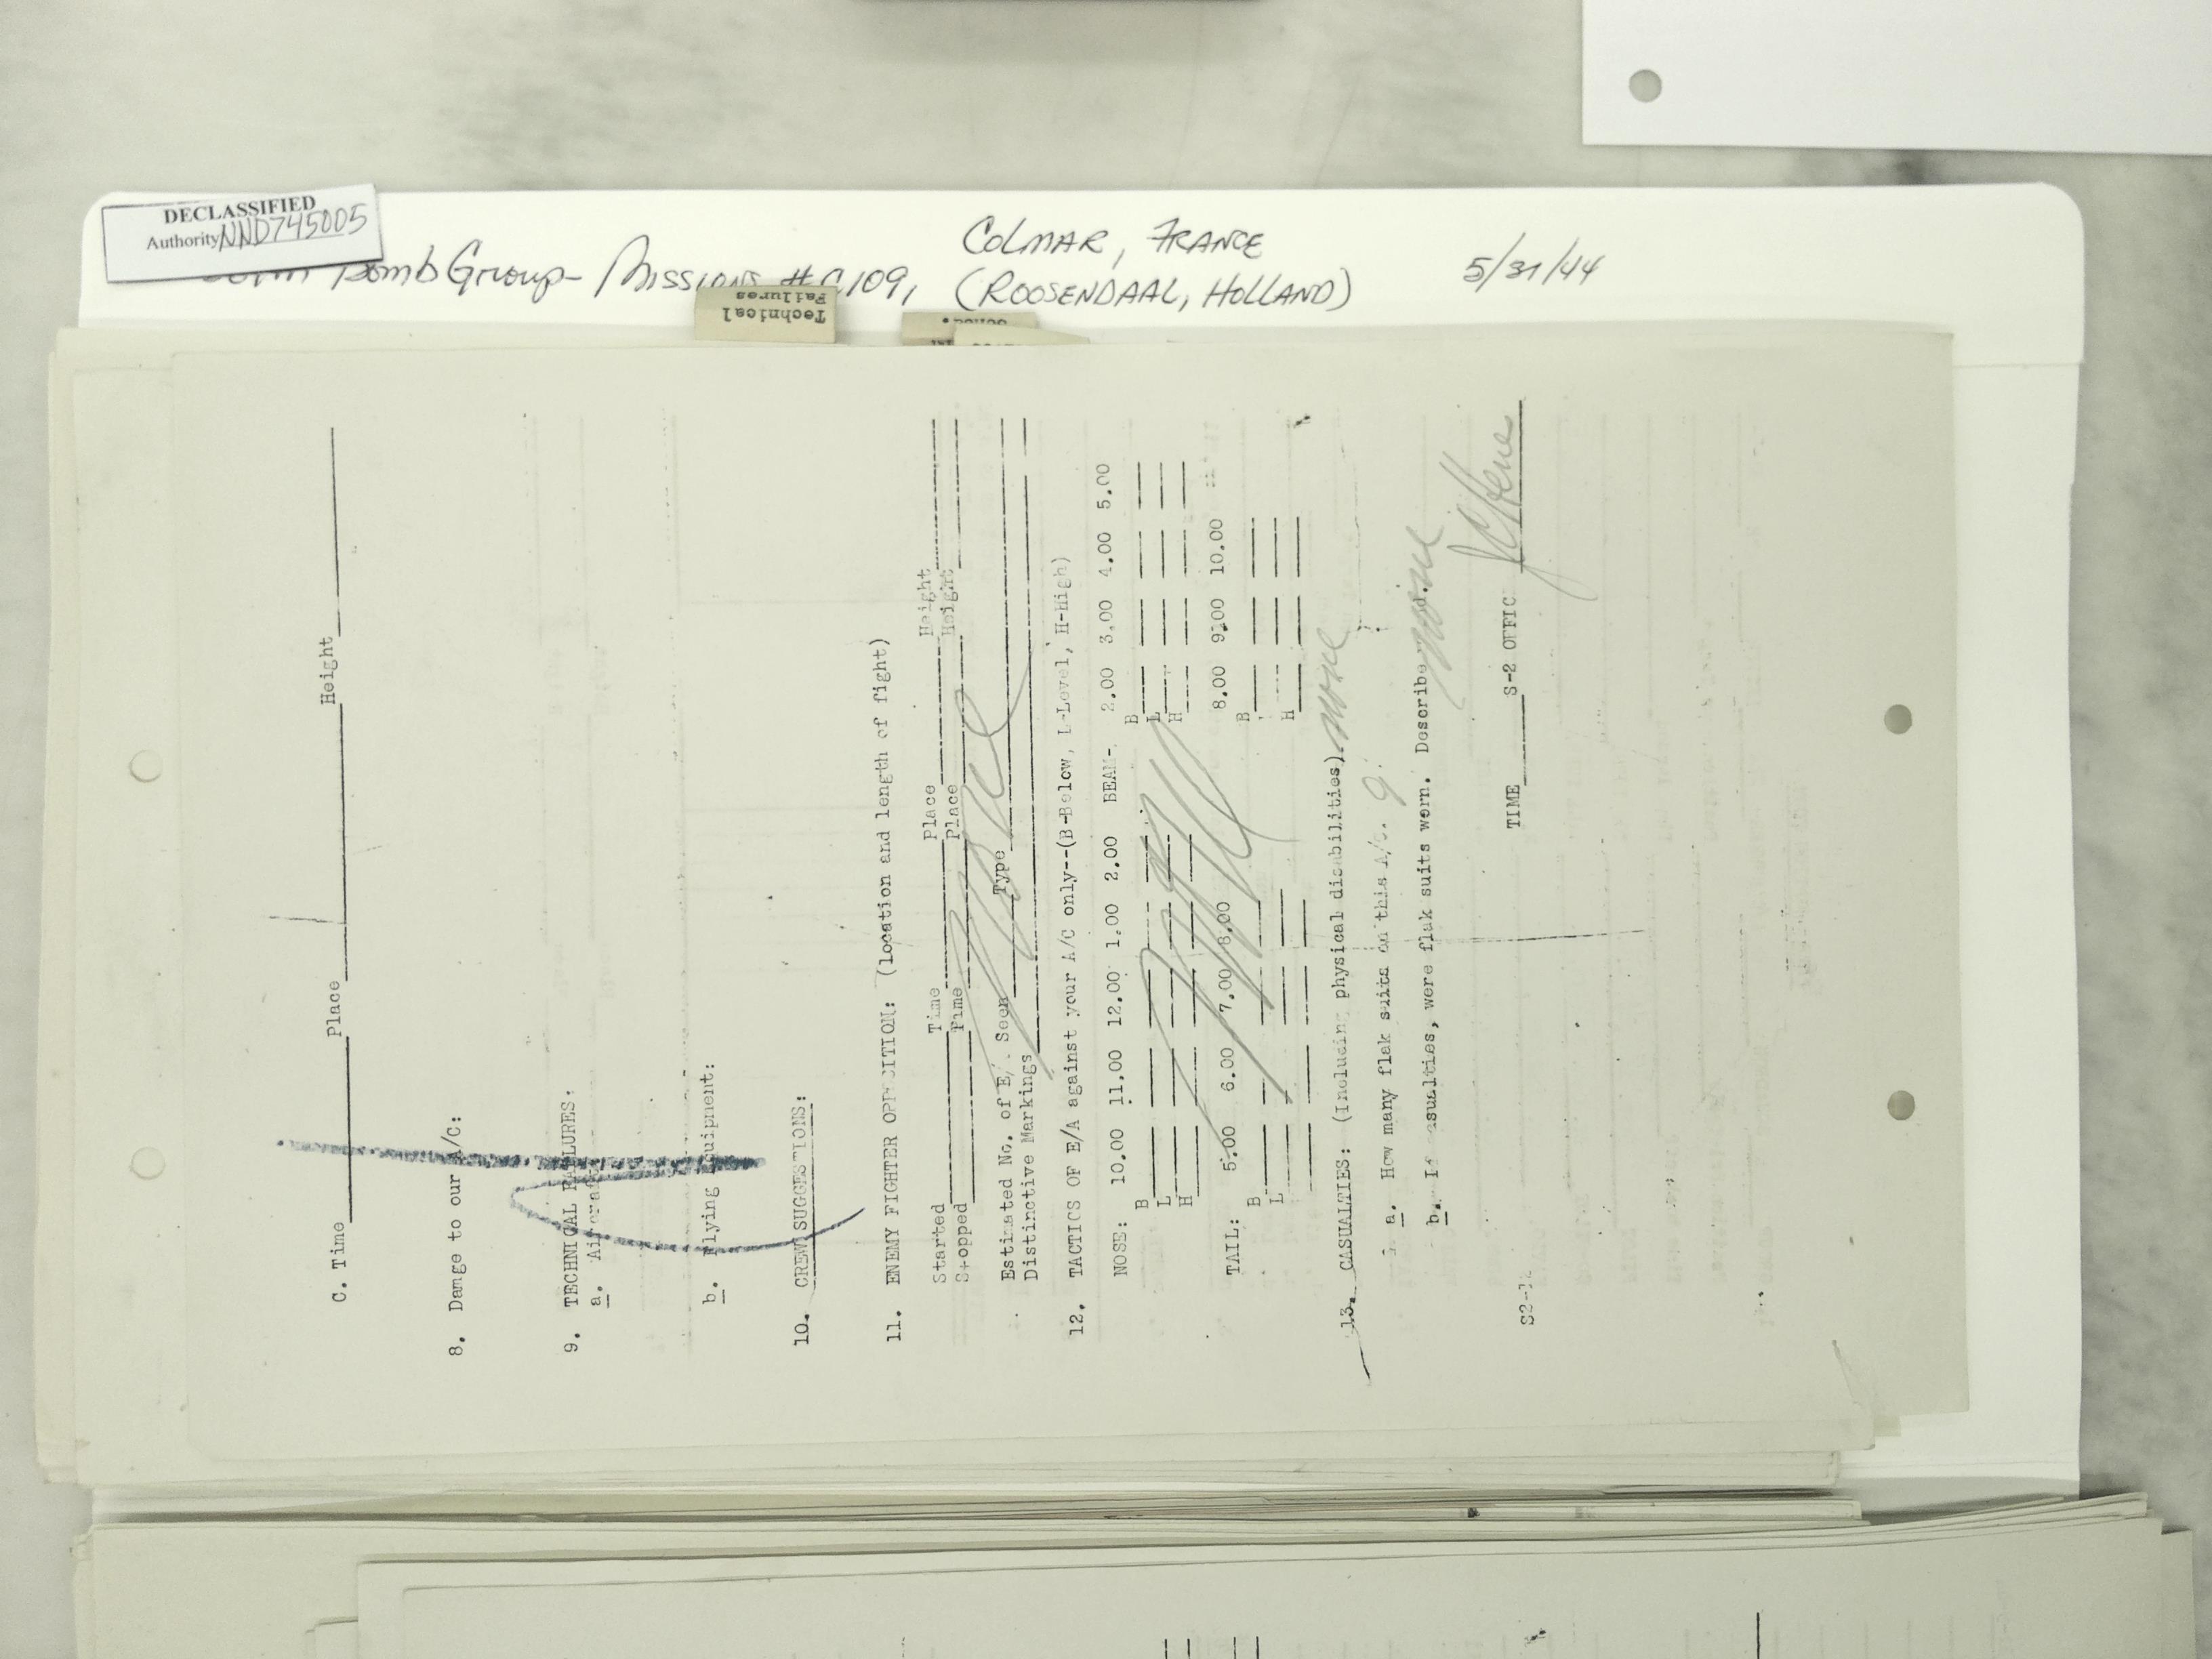 DECLASSIFIED
Authority NND745005
Bomb Group- Missions # 109,
COLMAR, FRANCE
(ROOSENDAAL, HOLLAND)
5/31/44
Technical
Failures
C. Time Place Height
8. Damage to our A/C:
9. TECHNICAL FAILURES:
a. Aircraft
b. Flying Equipment:
10. CREW SUGGESTIONS:
11. ENEMY FIGHTER OPPOSITION: (location and length of fight)
Started Time Place Height
Stopped Time Place Height
Estimated No. of E/ Seen Type
Distinctive Markings
12. TACTICS OF E/A against your A/C only--(B-Below, L-Level, H-High)
NOSE: 10.00 11.00 12.00 1.00 2.00 BEAM- 2.00 3.00 4.00 5.00
B B
L L
H H
TAIL: 5.00 6.00 7.00 8.00 8.00 9.00 10.00
B B
L
H
13. CASUALTIES: (Including physical disabilities) none
a. How many flak suits on this A/C. 9
b. If casualties, were flak suits worn. Describe none
TIME S-2 OFFIC